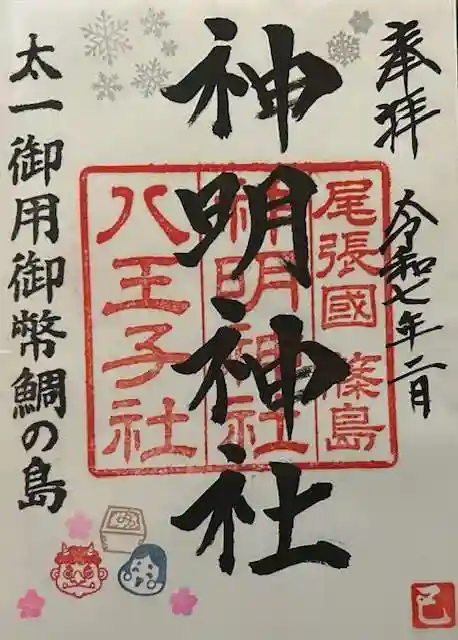 奉拝
令和七年二月
神明神社
尾張國 篠島
神明神社
八王子社
太一御用御幣鯛の島
巳